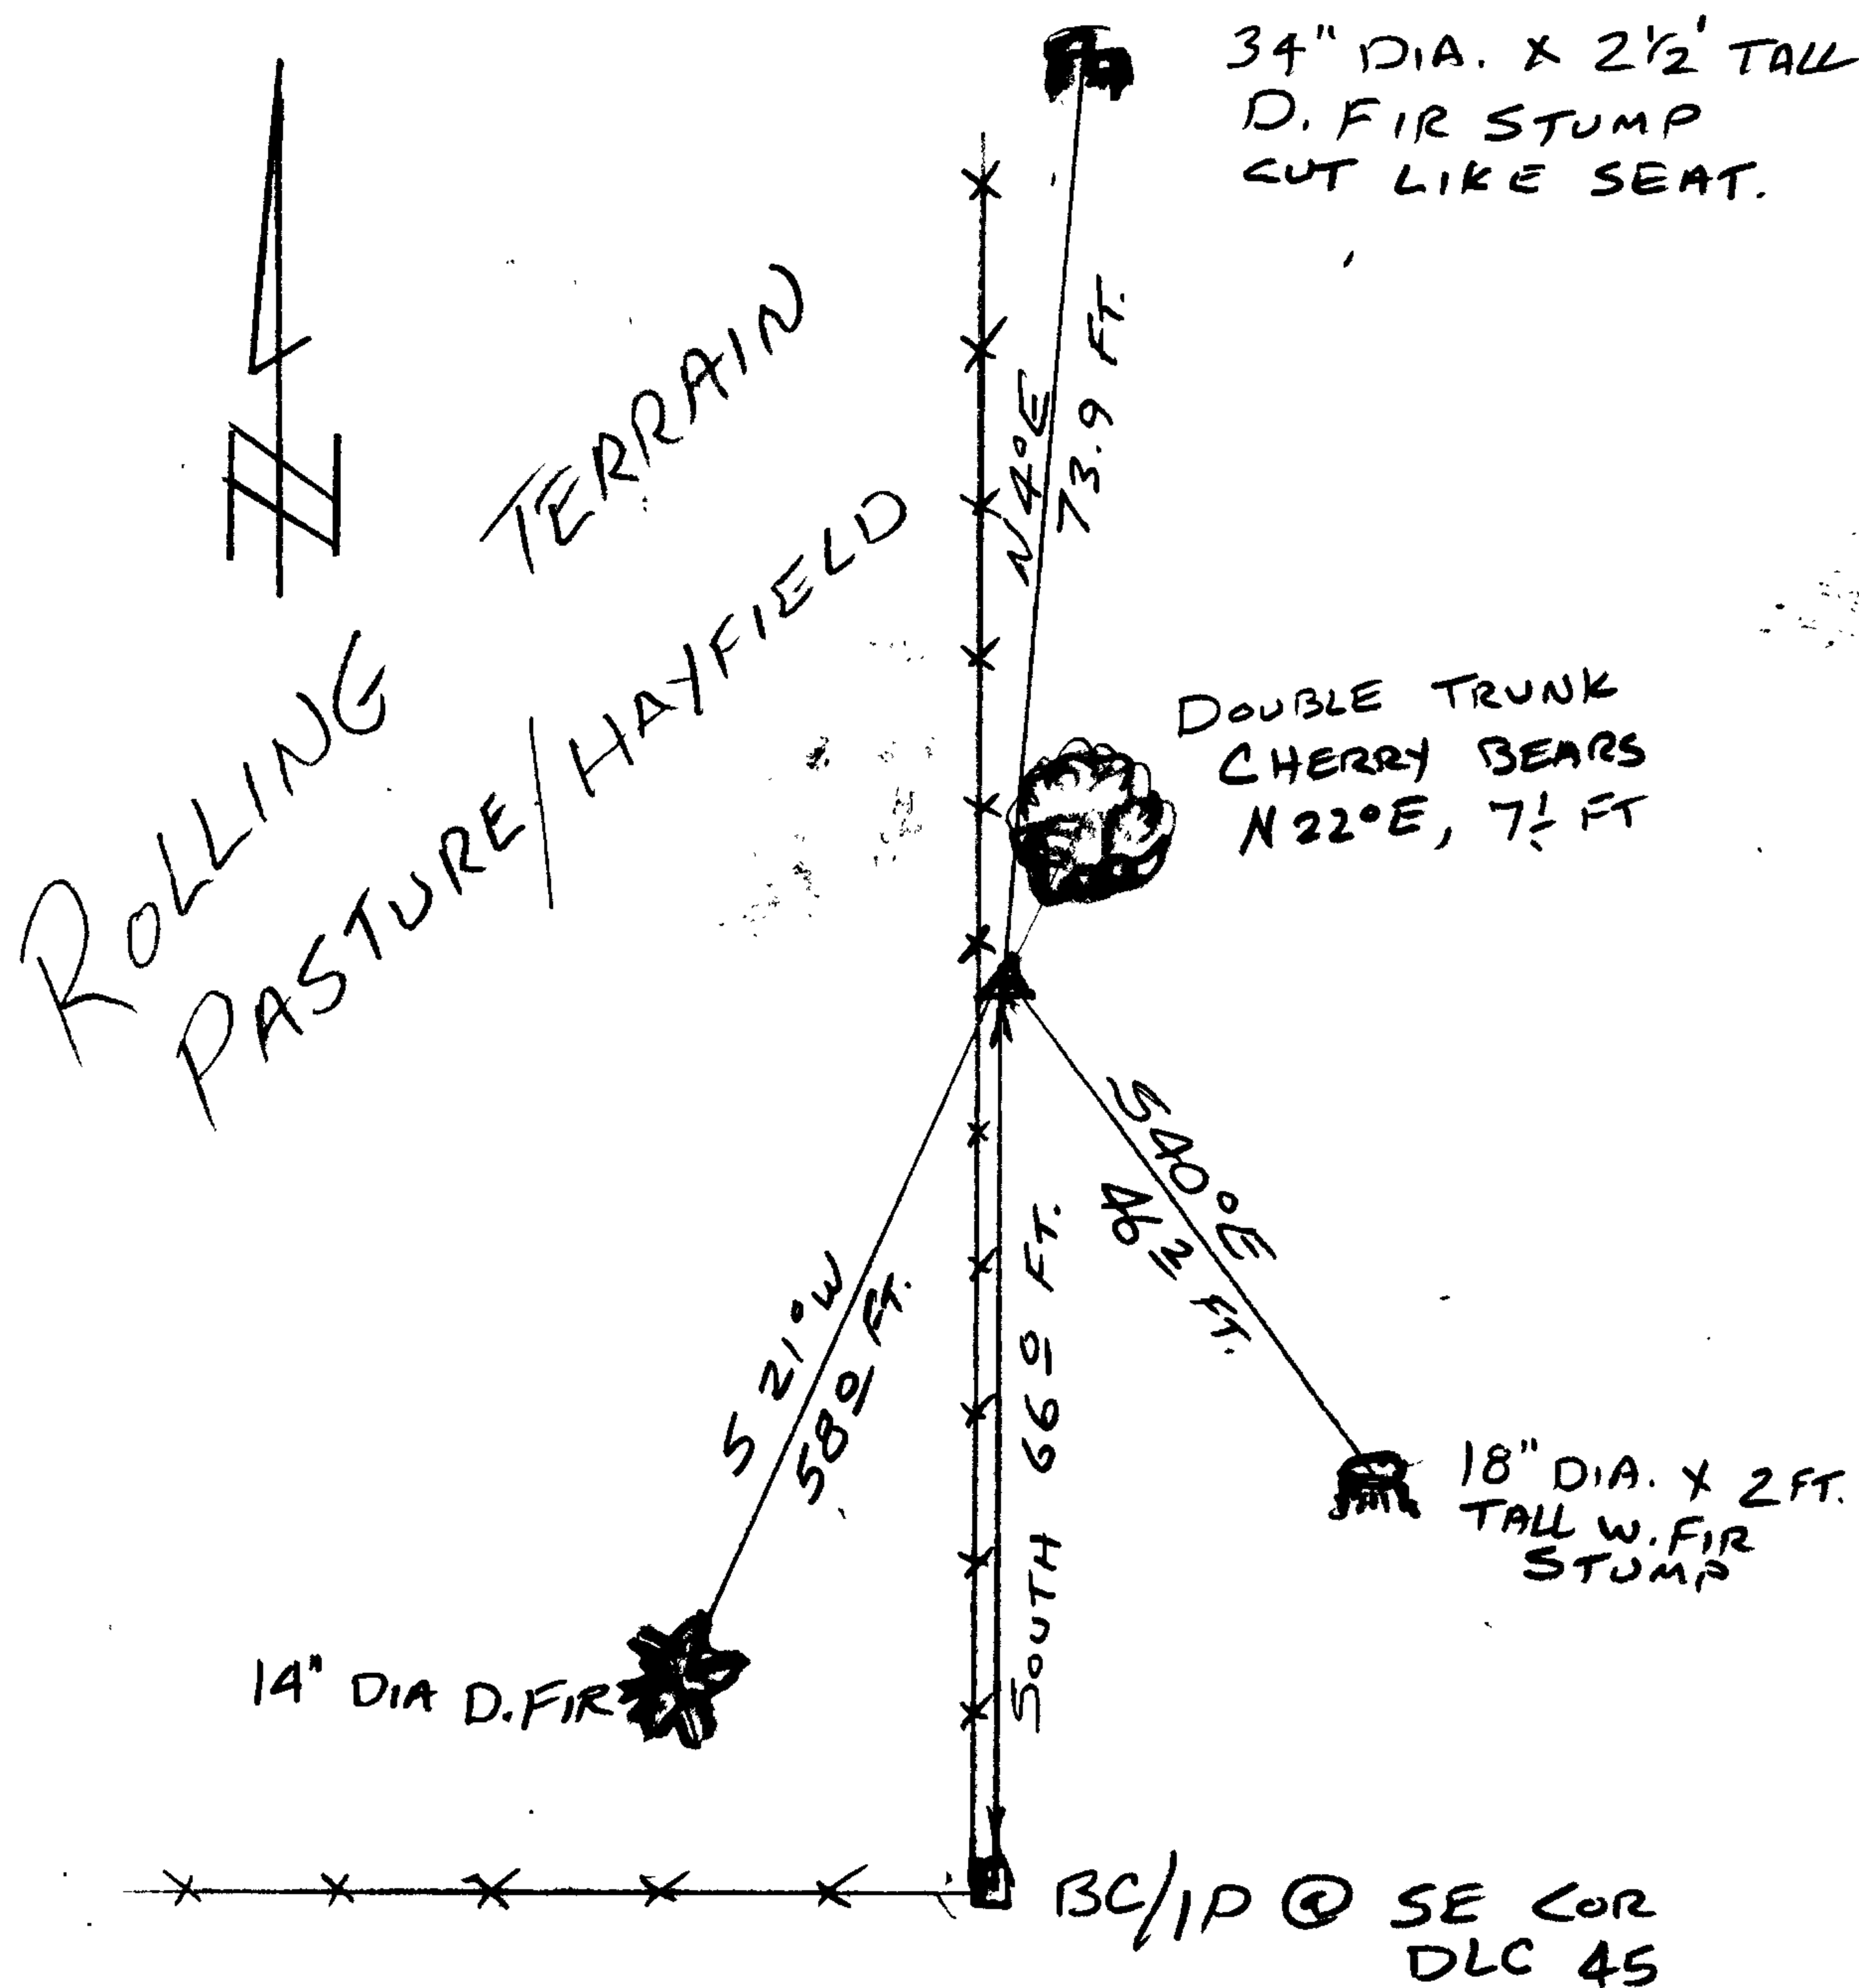 34" DIA. X 2 1/2' TALL
D. FIR STUMP
CUT LIKE SEAT.
N
ROLLING TERRAIN
PASTURE/HAYFIELD
N 4°E
73.9 FT.
DOUBLE TRUNK
CHERRY BEARS
N 22°E, 7.1 FT
S 40°E
FT.
S 21°W
FT.
SOUTH FT.
18" DIA. X 2 FT.
TALL W. FIR
STUMP
14" DIA D. FIR
BC/IP @ SE COR
DLC 45